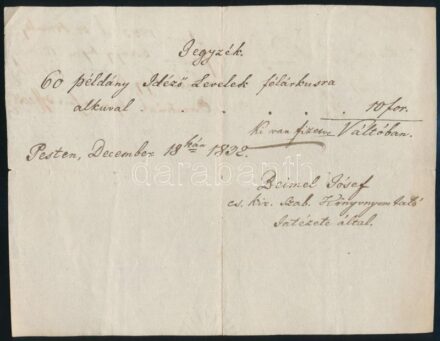 Jegyzék.
60 példány Idéző Levelek félárkusra
alkuval . . . . . 10 for.
Ki van fizetve Váltóban.
Pesten, December 18kán 1832.
Beimel Jósef
cs. kir. Szab. Könyvnyomtató
Intézete által.
darabanth